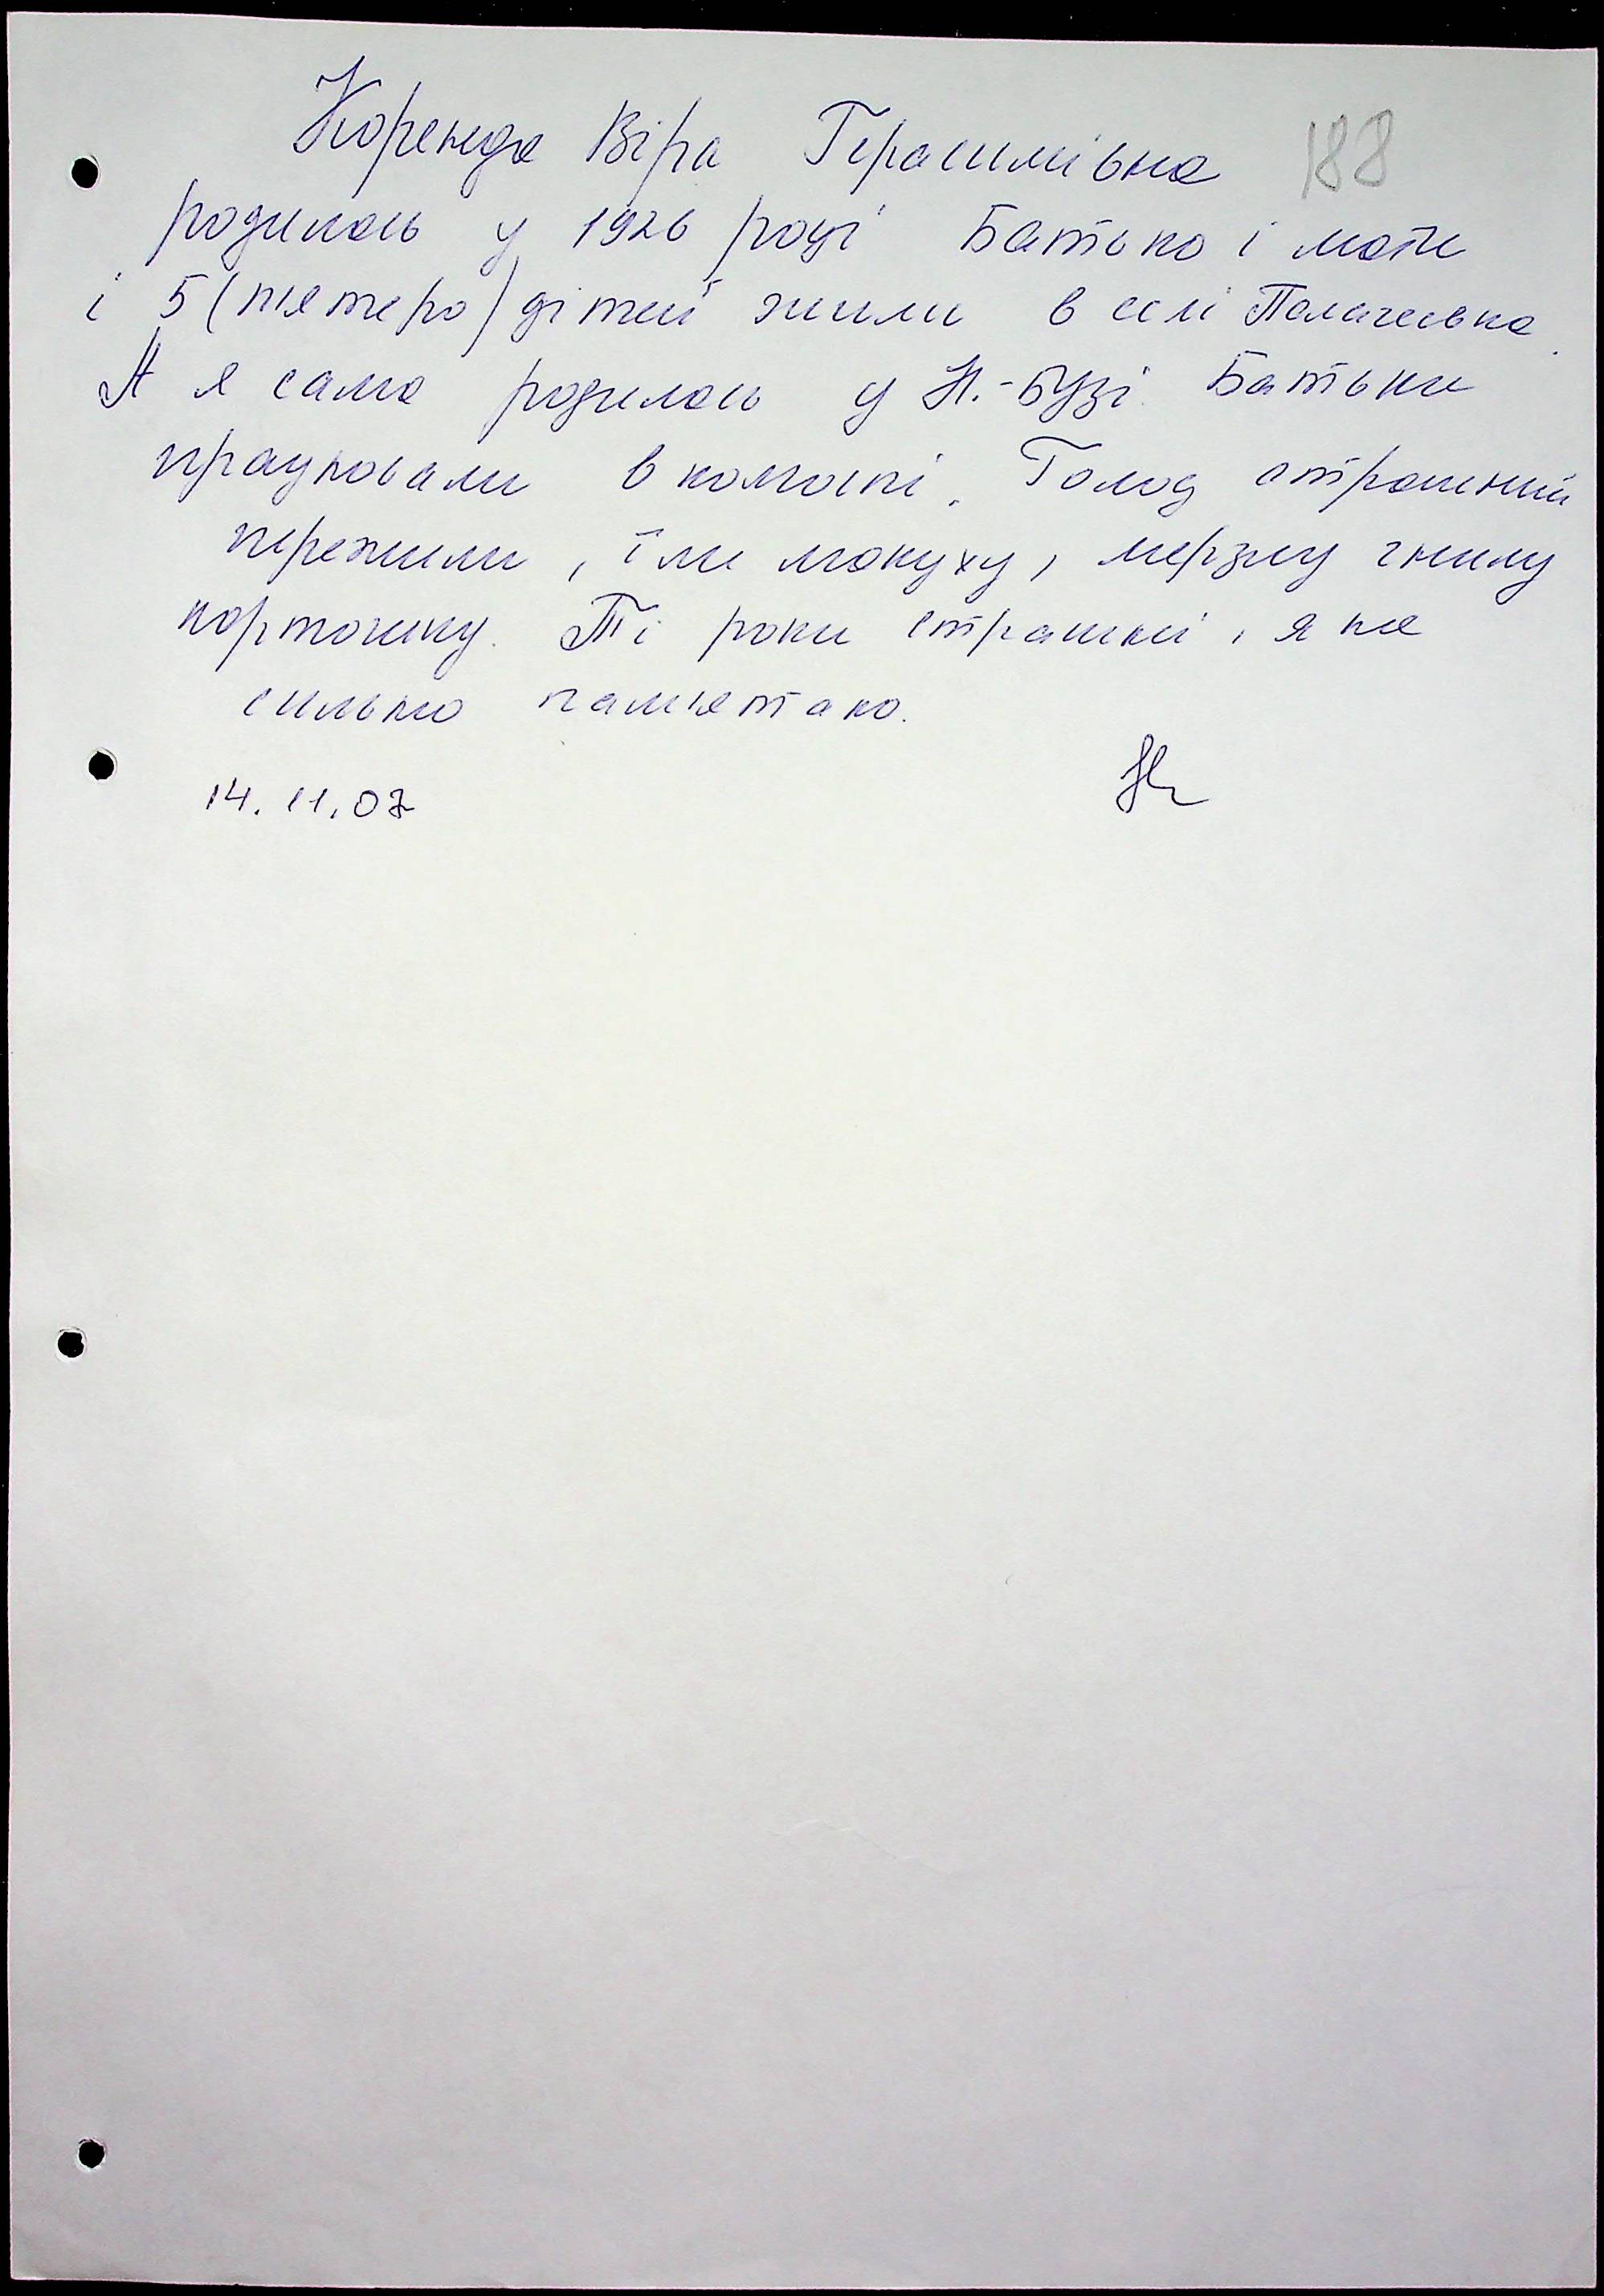 Коренда Віра Герасимівна 188
родилась у 1926 році Батько і мати
і 5 (п'ятеро) дітей жили в селі Палагеевка.
А я сама родилась у Н.-Бузі. Батьки
працювали в колгоспі. Голод страшний
пережили, їли макуху, мерзлу гнилу
картошку. Ті роки страшні, я не
сильно пам'ятаю.
14.11.07